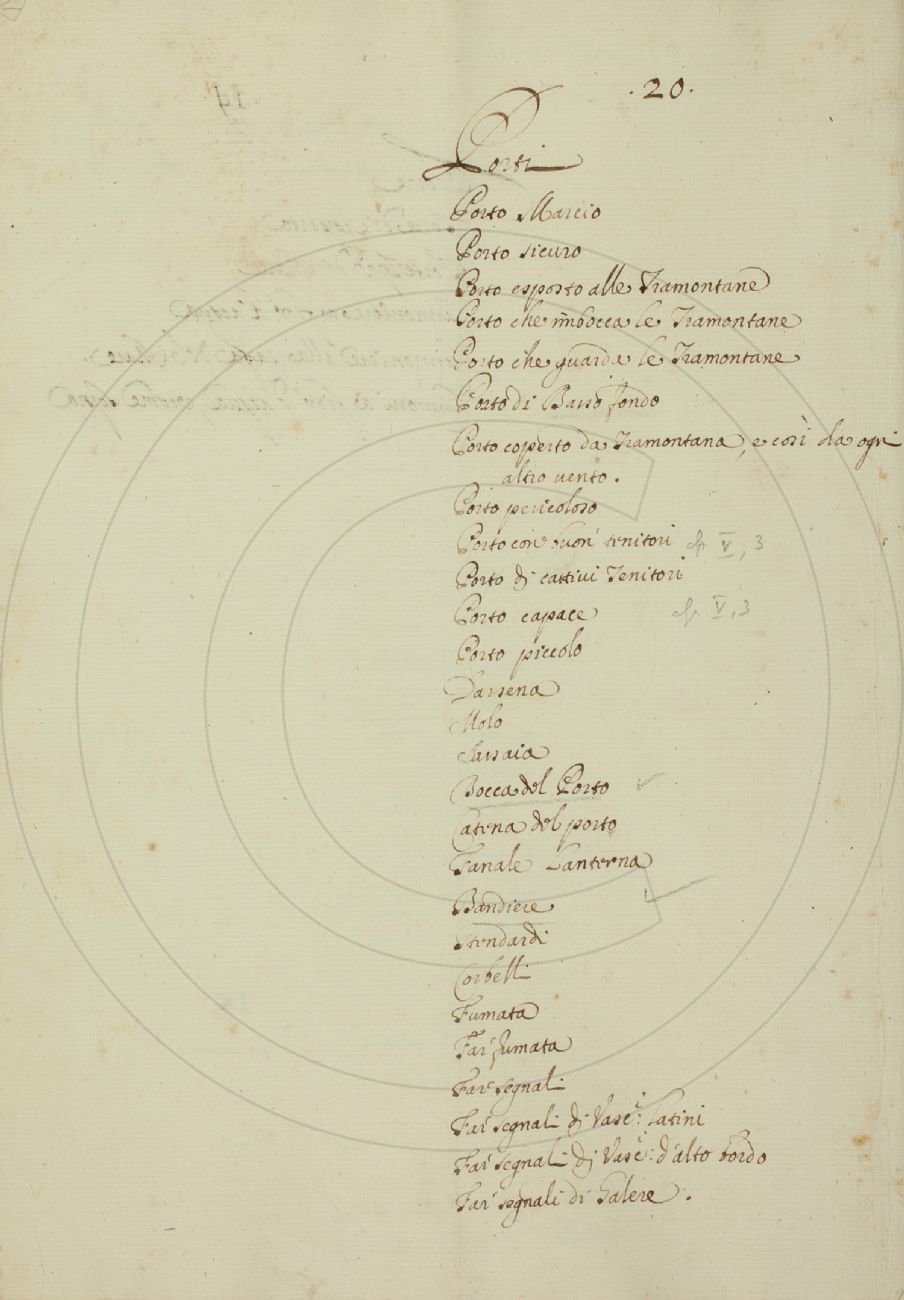 .20.
Porti
Porto Marcio
Porto sicuro
Porto esposto alle Tramontane
Porto che imbocca le Tramontane
Porto che guarda le Tramontane
Porto di Basso fondo
Porto coperto da Tramontana, e così da ogni
altro vento.
Porto pericoloso
Porto con buoni tenitori cfr V, 3
Porto di cattivi Tenitori
Porto capace cfr V, 3
Porto piccolo
Darsena
Molo
Sassaia
Bocca del Porto
Catena del porto
Fanale Lanterna
Bandiere
Stendardi
Corbelli
Fumata
Far fumata
Far segnali
Far segnali di Vasc.i: Latini
Far segnali di Vasc.i: d'alto bordo
Far segnali di Galere.